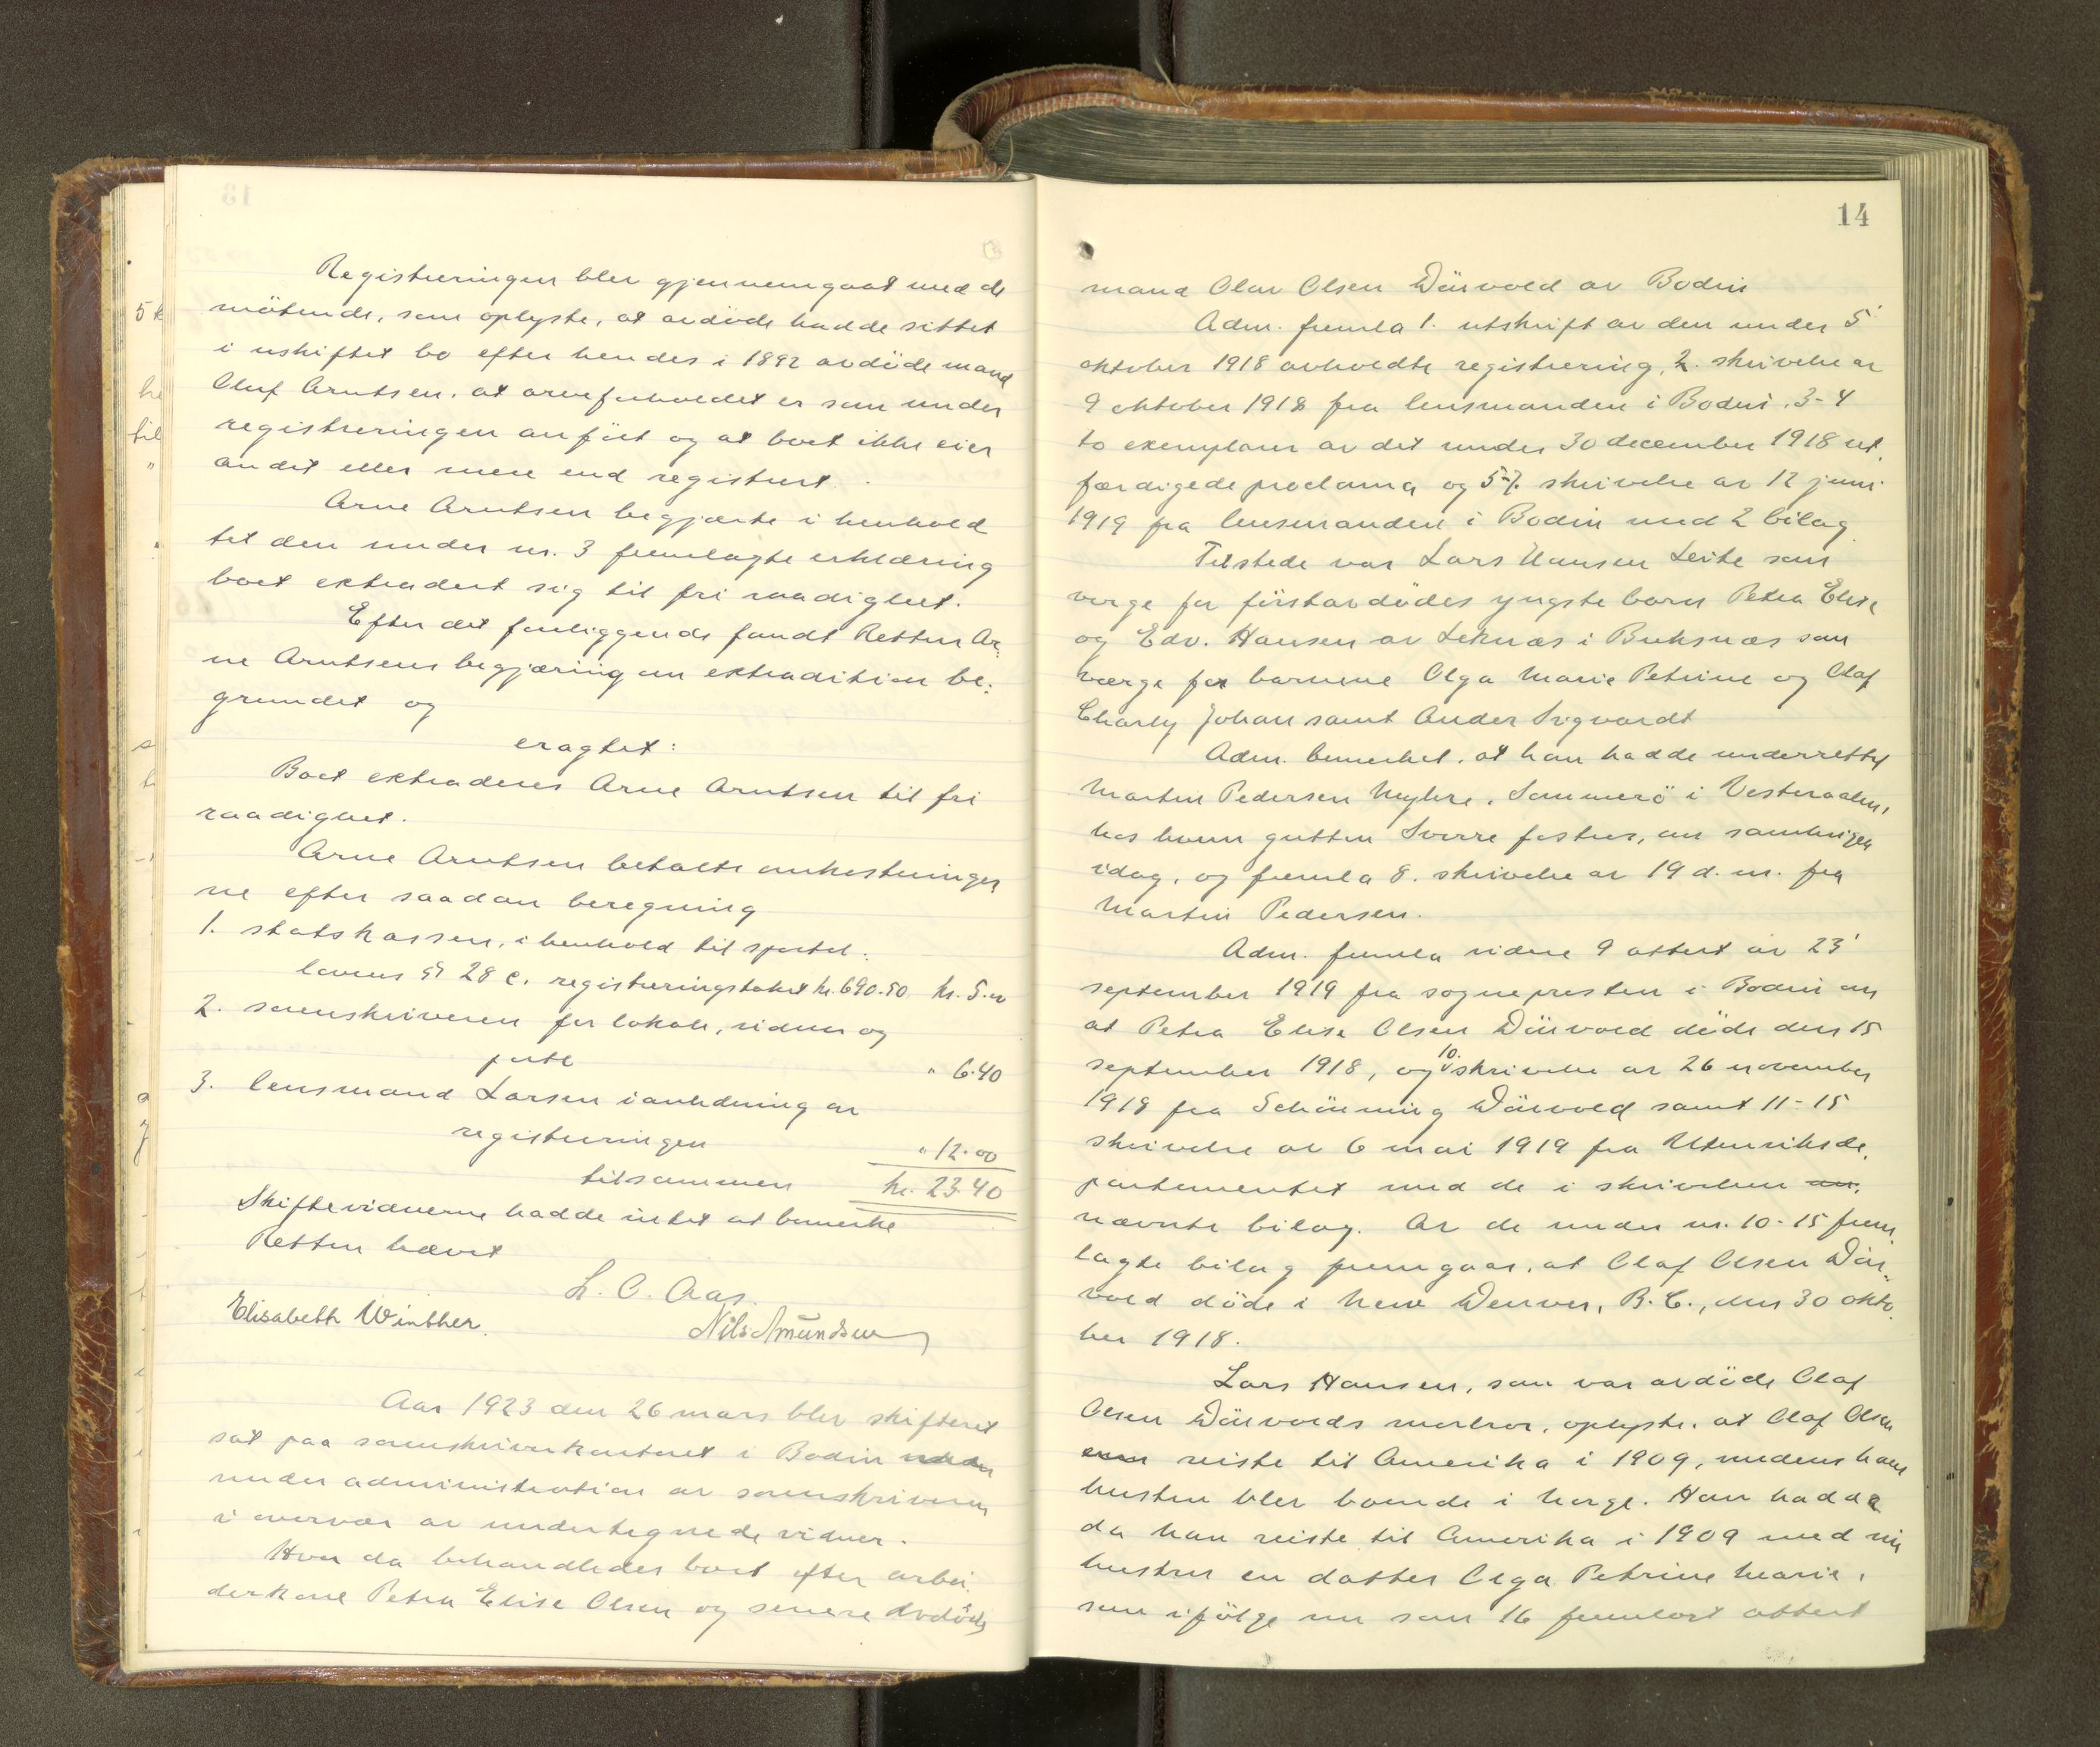 Registreringen blev gjennemgaat med de
mötende, som oplyste, at avdöde hadde sittet
i uskiftet bo efter hendes i 1892 avdöde mand
Oluf Arntsen, at arveforholdet er som under
registreringen anfört og at boet ikke eier
andet eller mere end registrert.
Arne Arntsen begjærte i henhold
til den under nr. 3 fremlagte erklæring
boet extradert sig til fri raadighet.
Efter det foreliggende fandt Retten Ar-
ne Arntsens begjæring om extradition be-
grundet og
eragtet:
Boet extraderes Arne Arntsen til fri
raadighet.
Arne Arntsen betalte omkostninger
ne efter saadan beregning
1. statskassen, i henhold til sportel-
lovens § 28 c. registreringstakst kr. 690.50 kr. 5.00
2. sorenskriveren for lokale, vidner og
porto " 6.40
3. lensmand Larsen i anledning av
registreringen " 12.00
tilsammen kr. 23.40
Skiftevidnerne hadde intet at bemerke
Retten hævet
L. C. Aas.
Elisabeth Winther. Nils Amundsen
Aar 1923 den 26 mars blev skifteret
sat paa sorenskriverkontoret i Bodin
under administration av sorenskriveren
i overvær av undertegnede vidner.
Hvor da behandledes boet efter arbei-
derkone Petra Elise Olsen og senere avdöde
14
mand Olav Olsen Däirvold av Bodin
Adm. fremla 1. utskrift av den under 5'
oktober 1918 avholdte registrering, 2. skrivelse av
9 oktober 1918 fra lensmanden i Bodin, 3-4
to exemplarer av det under 30 december 1918 ut-
færdigede proclama og 5-7. skrivelse av 12 juni
1919 fra lensmanden i Bodin med 2 bilag
Tilstede var Lars Hansen Leite som
verge for förstavdödes yngste barn Petra Elise
og Edv. Hansen av Leknæs i Buksnæs som
værge for barnene Olga Marie Petrine og Olaf
Charly Johan samt Ander Sigvardt
Adm. bemerket, at han hadde underrettet
Martin Pedersen Myhre, Sommerö i Vesteraalen,
hos hvem gutten Sverre fostres, om samlingen
idag, og fremla 8. skrivelse av 19 d. m. fra
Martin Pedersen.
Adm. fremla videre 9 attest av 23'
september 1919 fra sognepresten i Bodin om
at Petra Elise Olsen Däirvold döde den 15
september 1918, og 10. skrivelse av 26 november
1918 fra Schönning Däirvold samt 11-15
skrivelse av 6 mai 1919 fra Utenriksde-
partementet med de i skrivelsen
nævnte bilag. Av de under nr. 10-15 frem-
lagte bilag fremgaar, at Olaf Olsen Däir-
vold döde i New Denver, B. C., den 30 okto-
ber 1918.
Lars Hansen, som var avdöde Olaf
Olsen Däirvolds morbror, oplyste, at Olaf Olsen
reiste til Amerika i 1909, medens hans
hustru blev boende i Norge. Han hadde
da han reiste til Amerika i 1909 med sin
hustru en datter Olga Petrine Marie,
som ifölge nu som 16 fremlagt attest